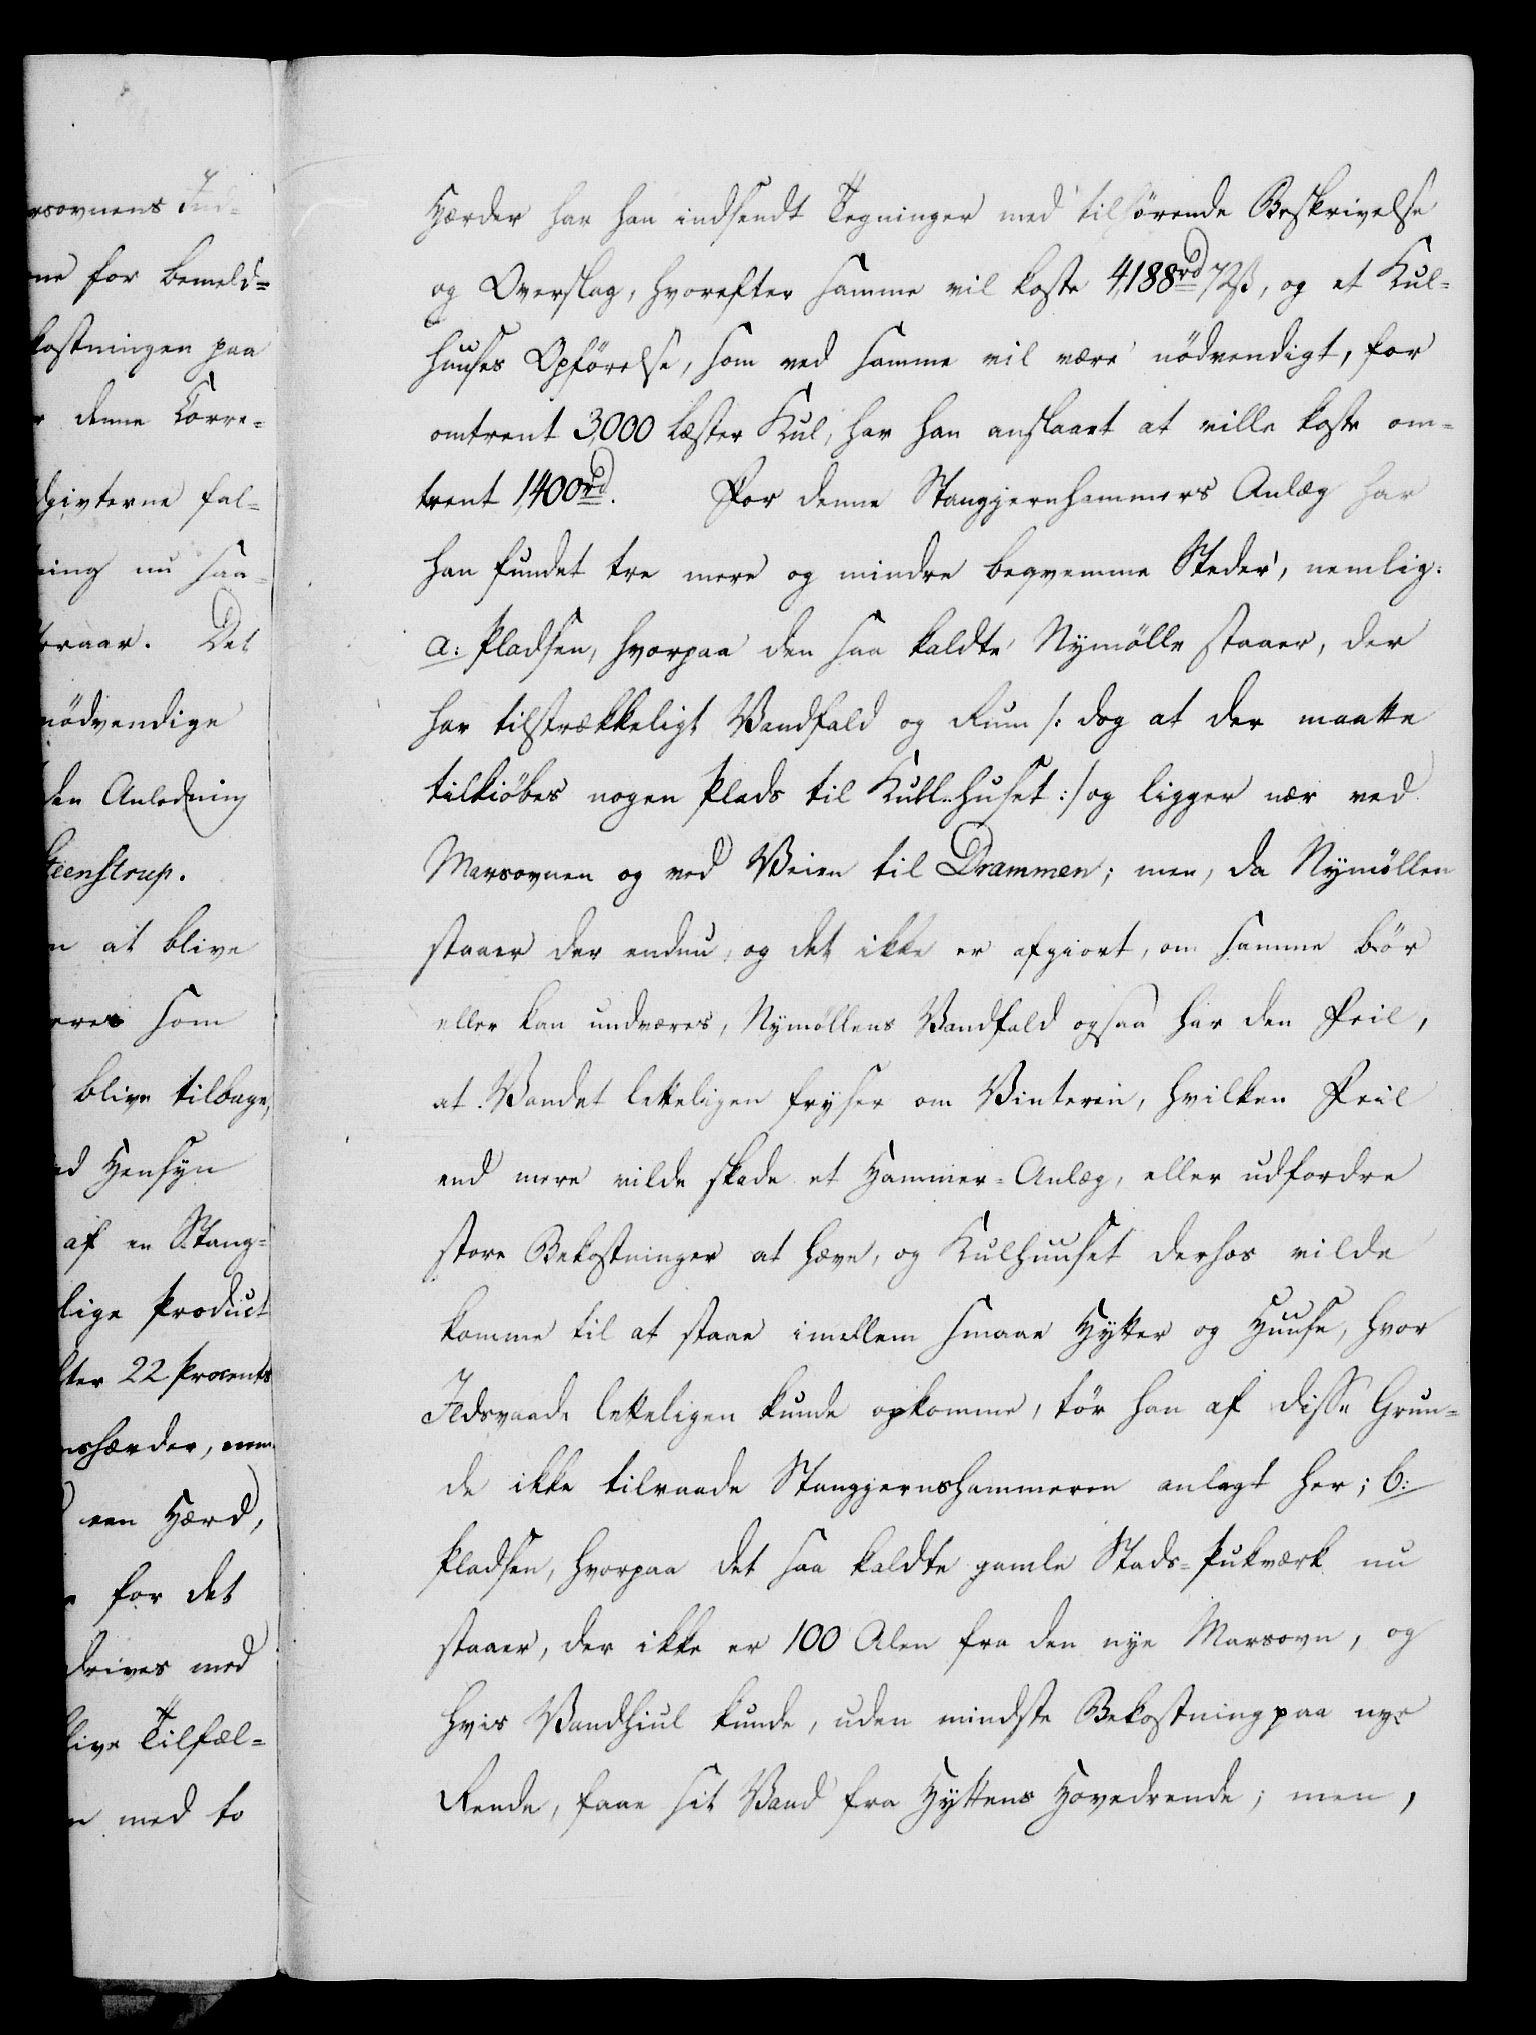 rsovnens Ind-
ne for bemeld-
kostningen paa
r denne Corre-
dgivterne fal-
ning nu saa-
teraar. Det
nödvendige
den Anledning
Steenstrup.
n at blive
eres som
blive tilbage,
ed Hensyn
af en Stang-
lige Product
fter 22 Procents
nshærder, men
een Hærd,
for det
drives med
blive Tilfæl-
n med to
Hærder har han indsendt Tegninger med tilhörende Beskrivelse
og Overslag, hvorefter samme vil koste 4,188rd 72ß, og et Kul-
huuses Opförelse, som ved samme vil være nödvendigt, for
omtrent 3,000 Læster Kul, har han anslaaet at ville koste om-
trent 1,400rd. For denne Stangjernhammers Anlæg har
han fundet tre mere og mindre beqvemme Steder, nemlig:
a: Pladsen, hvorpaa den saa kaldte Nymölle staaer, der
har tilstrækkeligt Vandfald og Rum /: dog at der maatte
tilkiöbes nogen Plads til Kull-huset :/ og ligger nær ved
Marsovnen og ved Veien til Drammen; men, da Nymöllen
staaer der endnu, og det ikke er afgiort, om samme bör
eller kan undværes, Nymöllens Vandfald ogsaa har den Feil,
at Vandet letteligen fryser om Vinteren, hvilken Feil
end mere vilde skade et Hammer-Anlæg, eller udfordre
store Bekostninger at hæve, og Kulhuuset derhos vilde
komme til at staae imellem smaae Hytter og Huuse, hvor
Ildsvaade letteligen kunde opkomme, tör han af disse Grun-
de ikke tilraade Stangjernshammeren anlagt her; b:
Pladsen, hvorpaa det saa kaldte gamle Stads-Pukværk nu
staaer, der ikke er 100 Alen fra den nye Marsovn, og
hvis Vandhiul kunde, uden mindste Bekostning paa nye
Rende, faae sit Vand fra Hyttens Hovedrende; men,